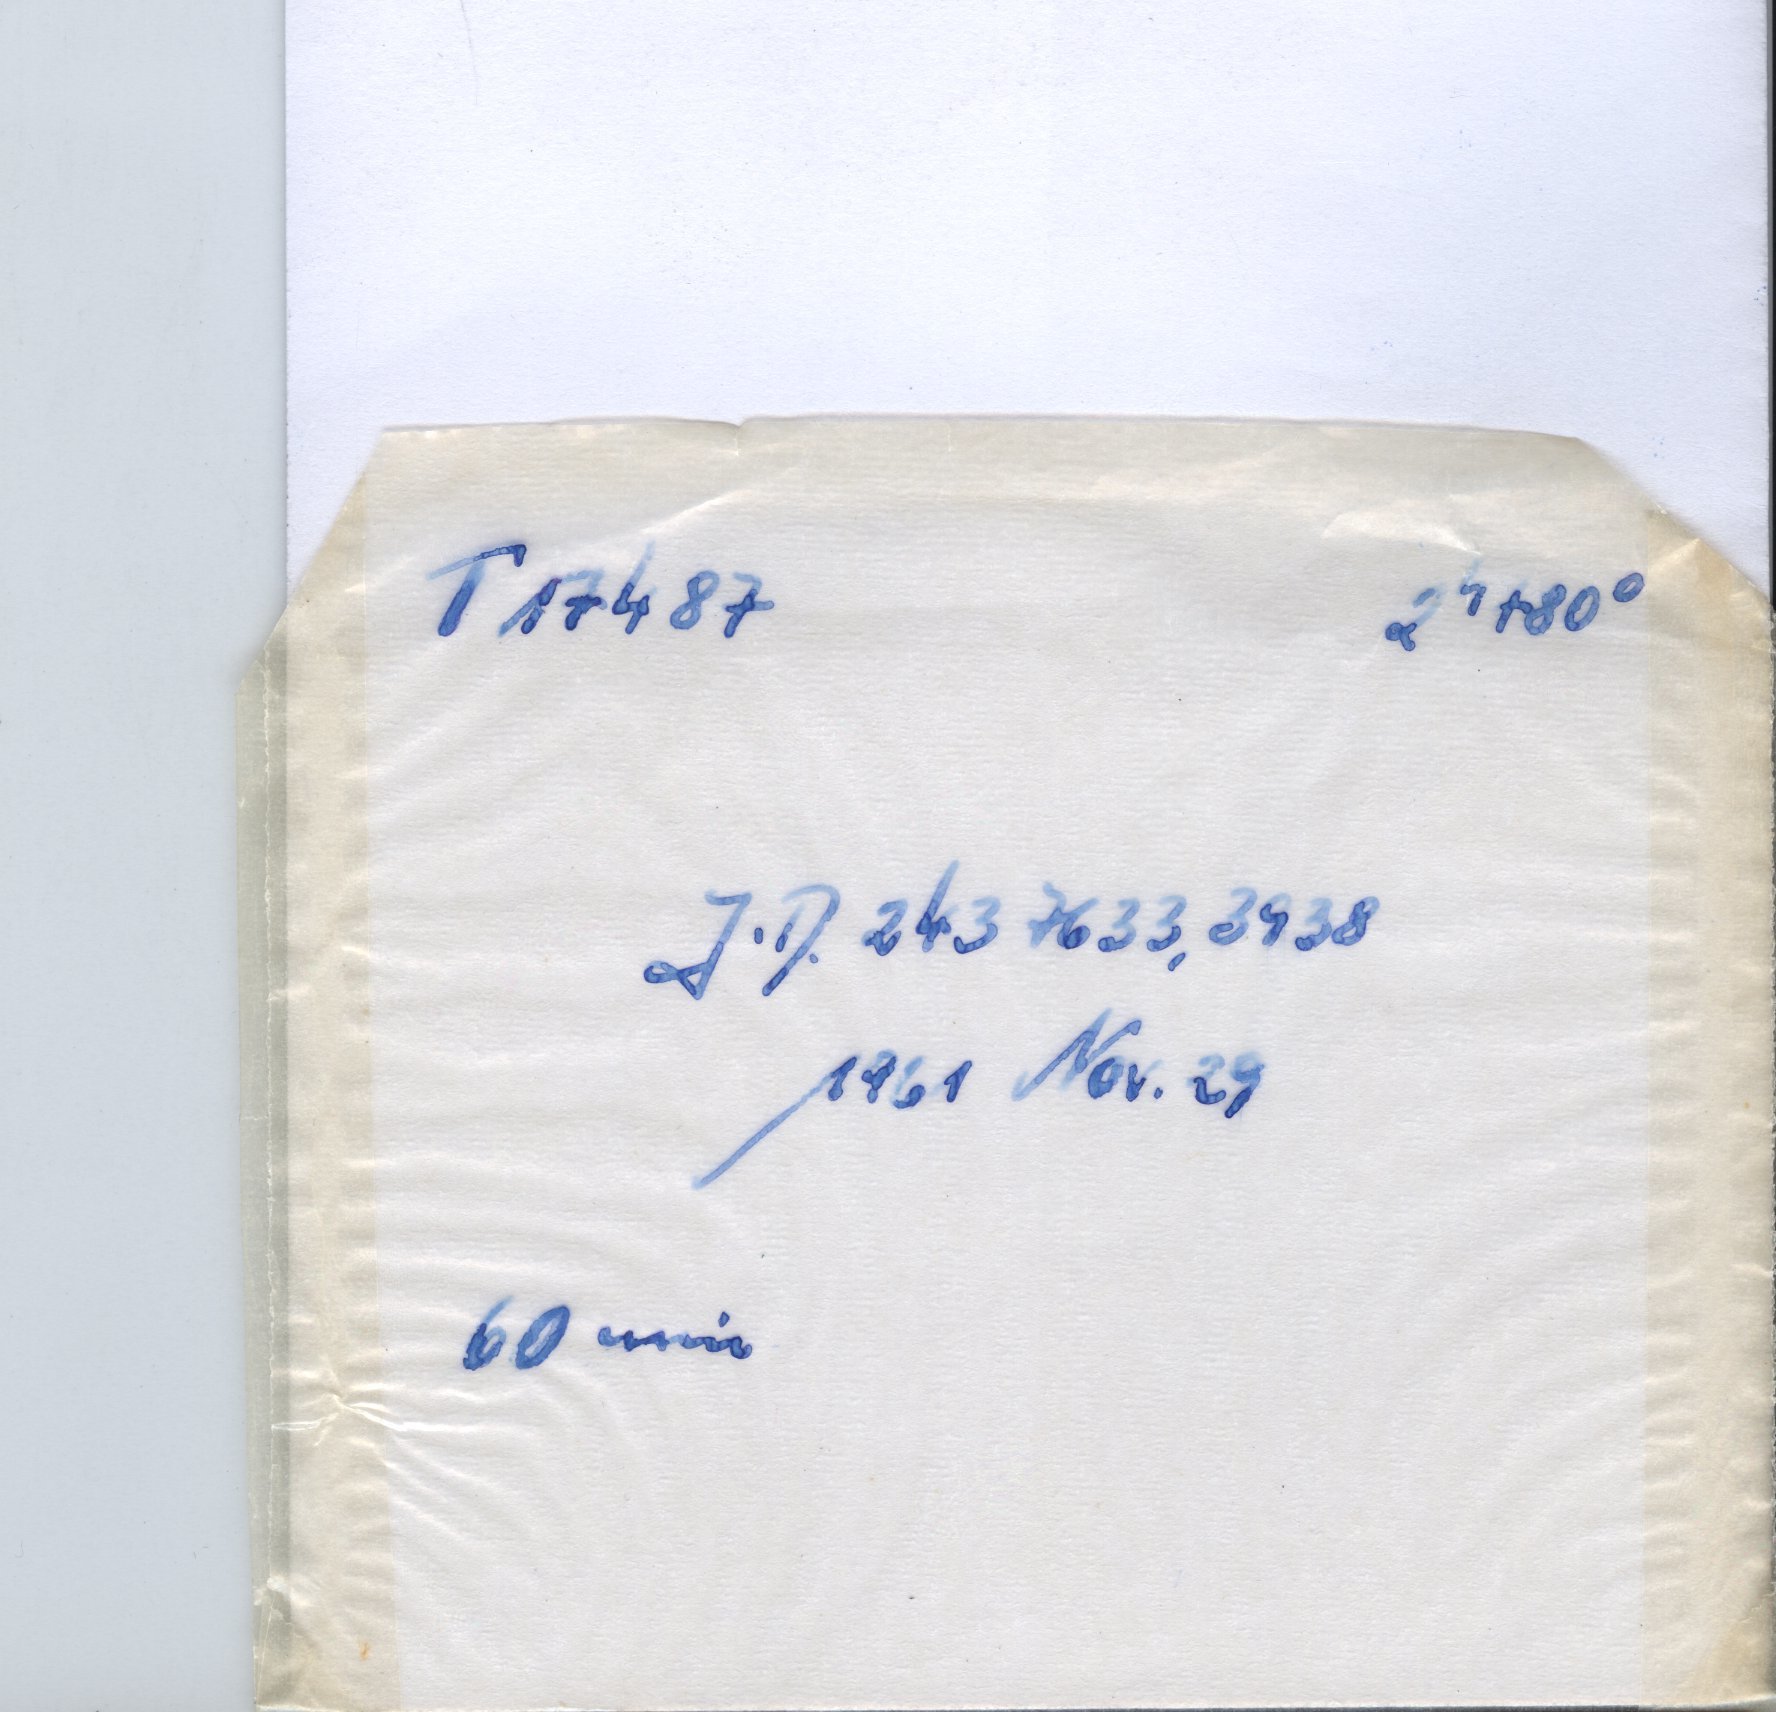 T 17487 2ʰ+80°
J.D. 243 7633,3938
1961 Nov. 29
60 min